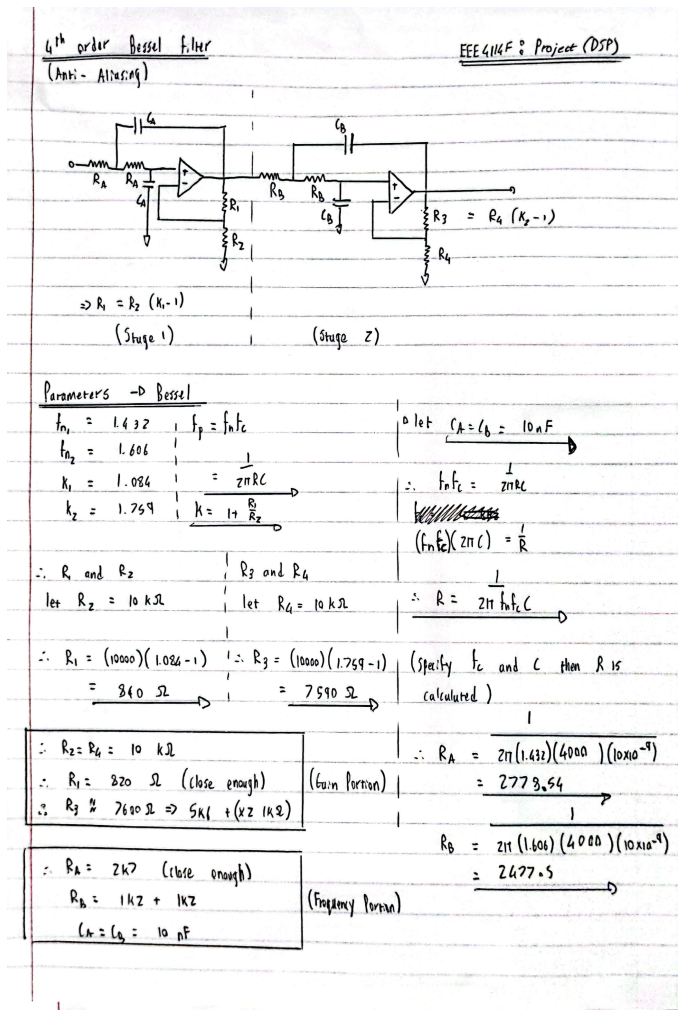 4th order Bessel filter
EEE4114F : Project (DSP)
(Anti-Aliasing)
CA
CB
RA RA
CA
R1
R2
RB RB
CB
R3 = R4 (K2-1)
R4
⇒ R1 = R2 (K1-1)
(Stage 1)
(Stage 2)
Parameters → Bessel
fn1 = 1.432
fn2 = 1.606
K1 = 1.084
K2 = 1.759
fp = fnfc
= 1/2πRC
K = 1+ R1/R2
let CA = CB = 10nF
∴ fnfc = 1/2πRC
(fnfc)(2πC) = 1/R
∴ R = 1/2πfnfcC
∴ R1 and R2
let R2 = 10 kΩ
R3 and R4
let R4 = 10 kΩ
∴ R1 = (10000)(1.084-1)
= 840 Ω
∴ R3 = (10000)(1.759-1)
= 7590 Ω
(Specify fc and C then R is
calculated)
∴ RA = 1/2π(1.432)(4000)(10x10-9)
= 2778.54
RB = 1/2π(1.606)(4000)(10x10-9)
= 2477.5
∴ R2 = R4 = 10 kΩ
∴ R1 = 820 Ω (close enough)
∴ R3 ≈ 7600 Ω ⇒ 5k6 + (x2 1kΩ)
(Gain Portion)
∴ RA = 2k7 (close enough)
RB = 1k2 + 1k2
CA = CB = 10 nF
(Frequency Portion)